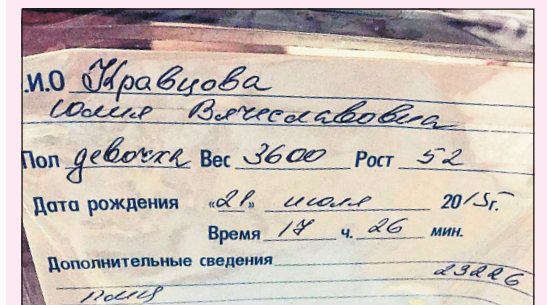 .И.О Кравцова
Юлия Вячеславовна
Пол девочка Вес 3600 Рост 52
Дата рождения «21» июля 2015г.
Время 17 ч. 26 мин.
Дополнительные сведения
23226